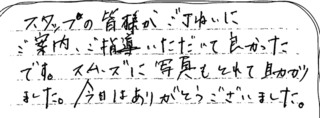 スタッフの皆様がごていねいに
ご案内、ご指導いただいて良かった
です。スムーズに写真もとれて助かり
ました。今日はありがとうございました。